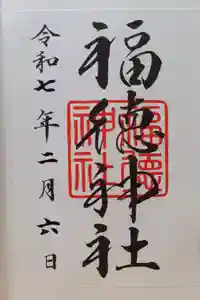 福徳神社
福德
神社
令和七年二月六日